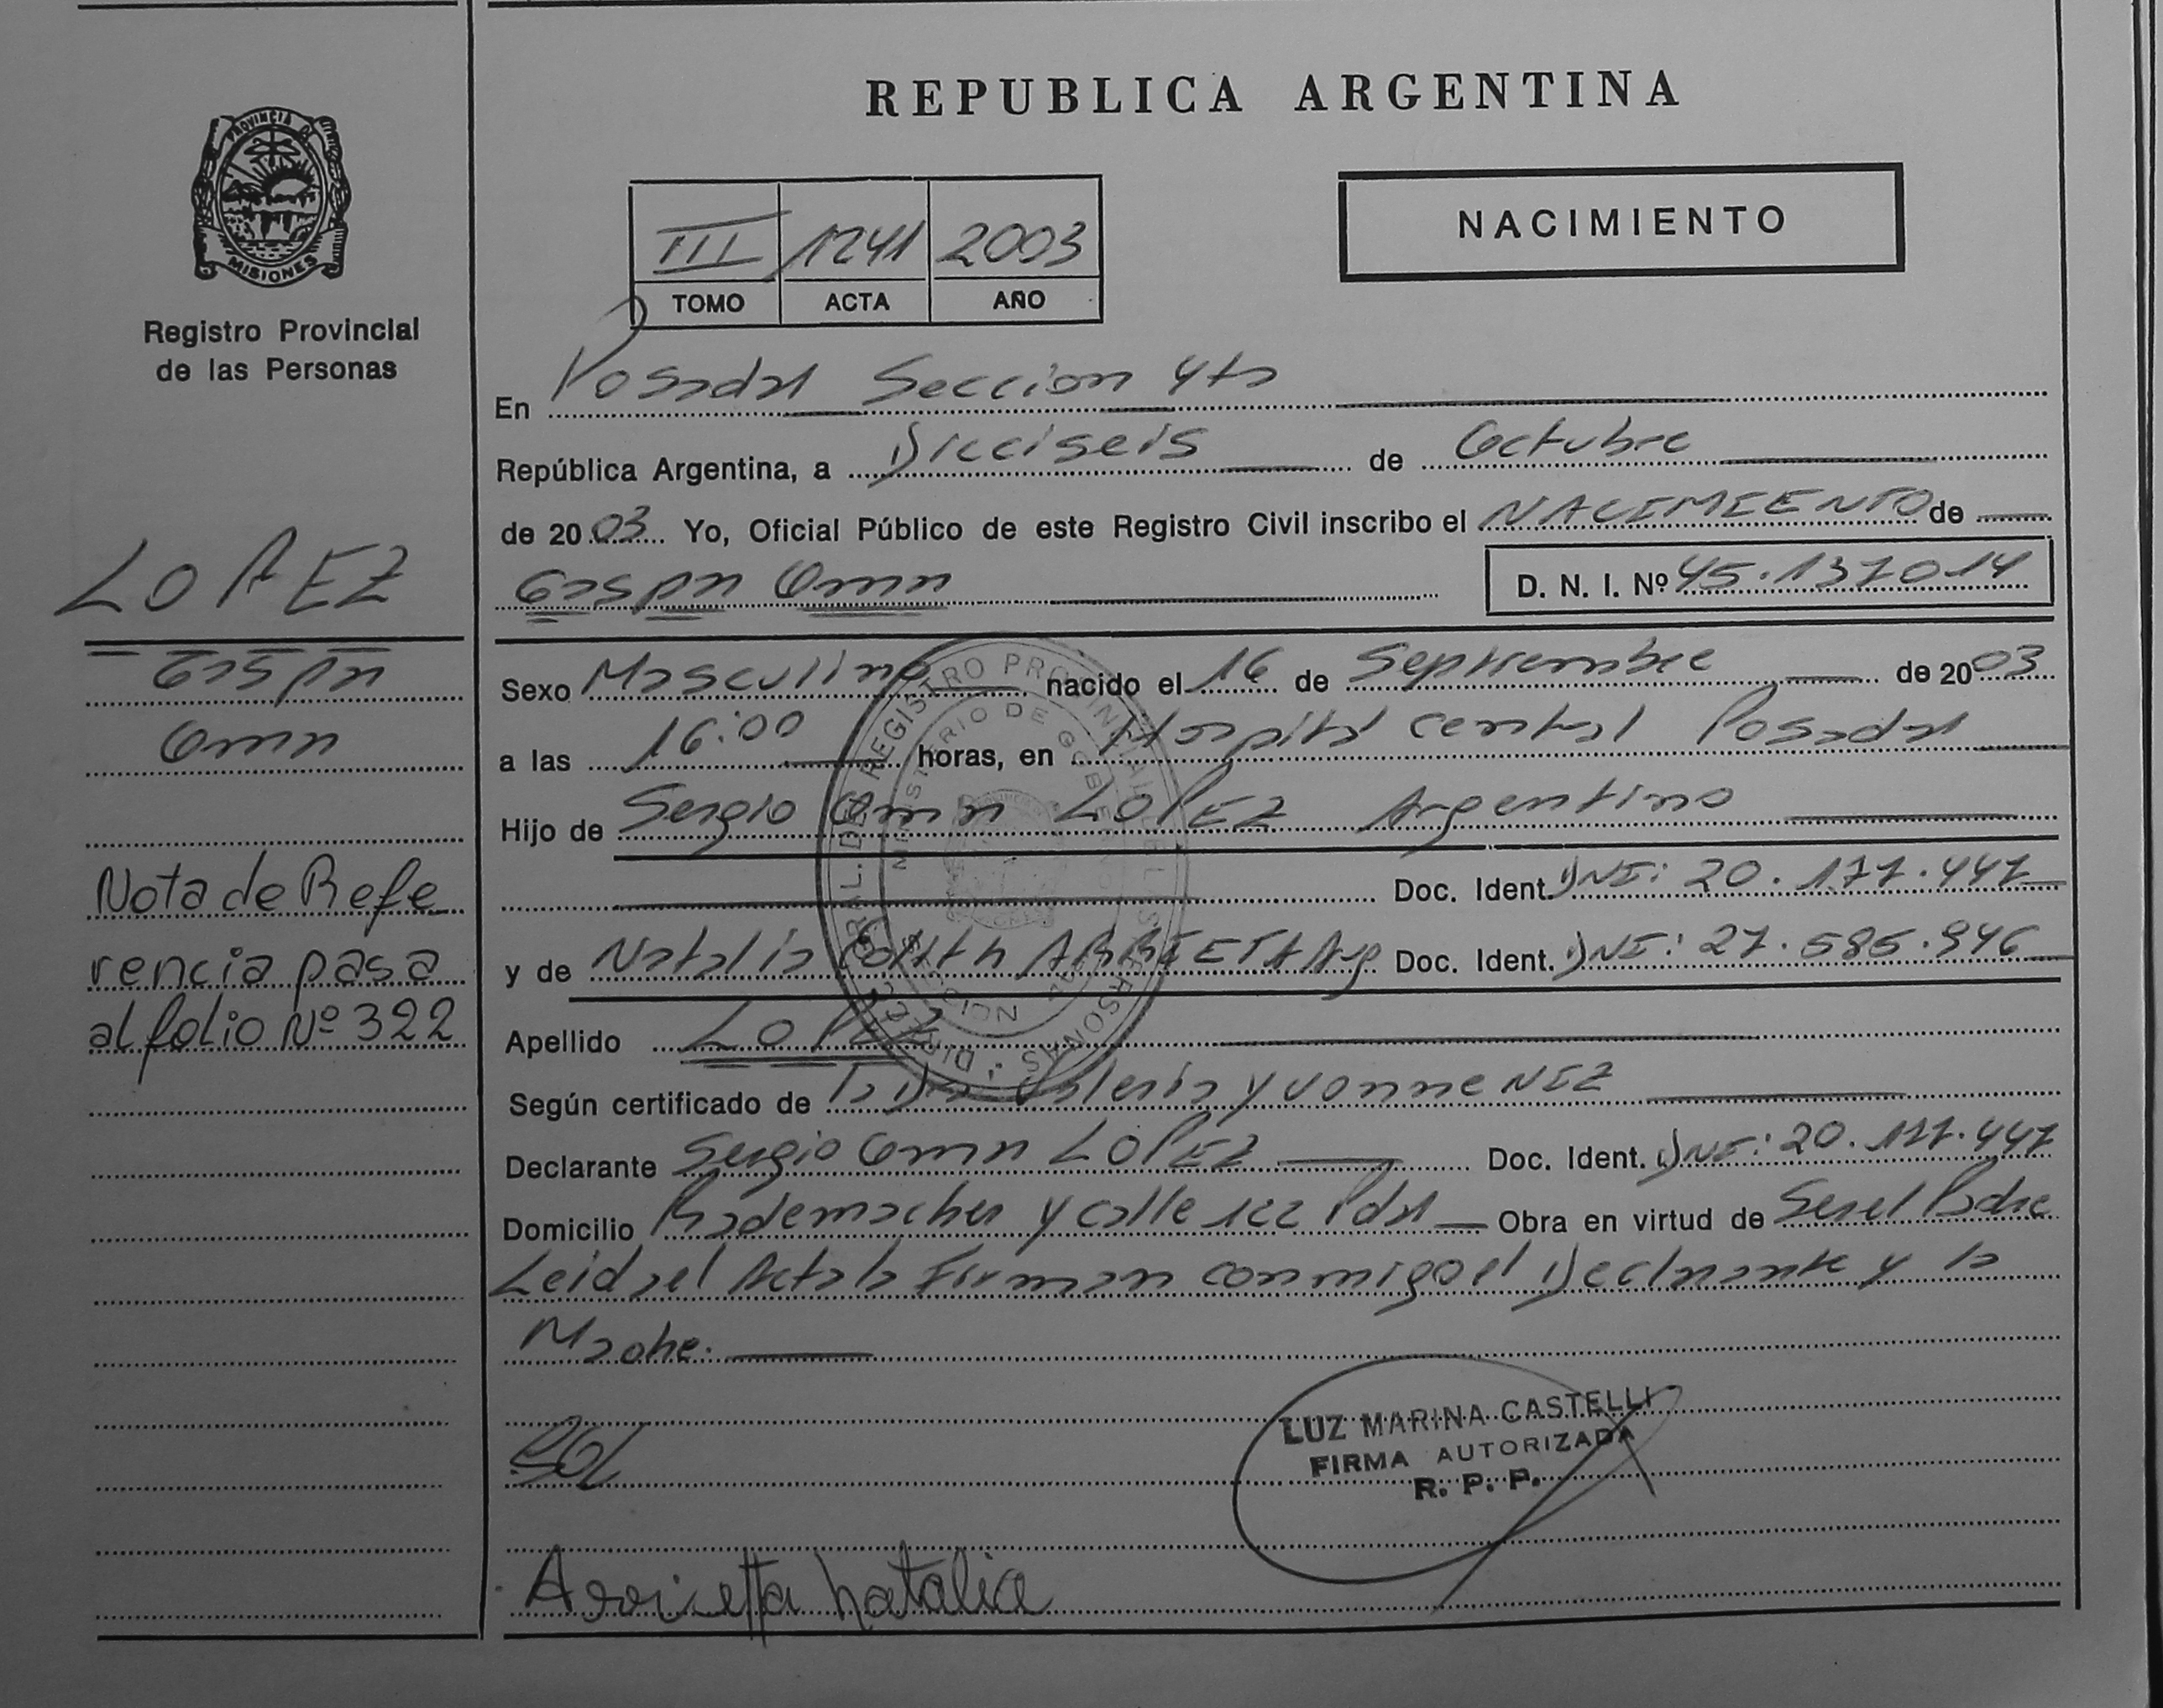 REPUBLICA ARGENTINA
PROVINCIA D
MISIONES
Registro Provincial
de las Personas
NACIMIENTO
III 1241 2003
TOMO ACTA AÑO
En Posadas Seccion 4ta
República Argentina, a Dieciseis de Octubre
de 2003 Yo, Oficial Público de este Registro Civil inscribo el NACIMIENTO de
Gaspar Omar D. N. I. Nº 45.137014
LOPEZ
Gaspar
Omar
Nota de Refe
rencia pasa
al folio Nº 322
Sexo Masculino nacido el 16 de Septiembre de 2003
a las 16:00 horas, en Hospital central Posadas
Hijo de Sergio Omar LOPEZ Argentino
Doc. Ident. DNI: 20.177.447
y de Natalia Edith ARRIETA Arg Doc. Ident. DNI: 27.585.946
Apellido LOPEZ
Según certificado de la Dra Valeria Yvonne NIZ
Declarante Sergio Omar LOPEZ Doc. Ident. DNI: 20.177.447
Domicilio Rademacher y calle 122 Pdas Obra en virtud de Ser el Padre
Leida el Acta la Firman conmigo el Declarante y la
Madre.
LUZ MARINA CASTELLI
FIRMA AUTORIZADA
R. P. P.
Arrietta Natalia